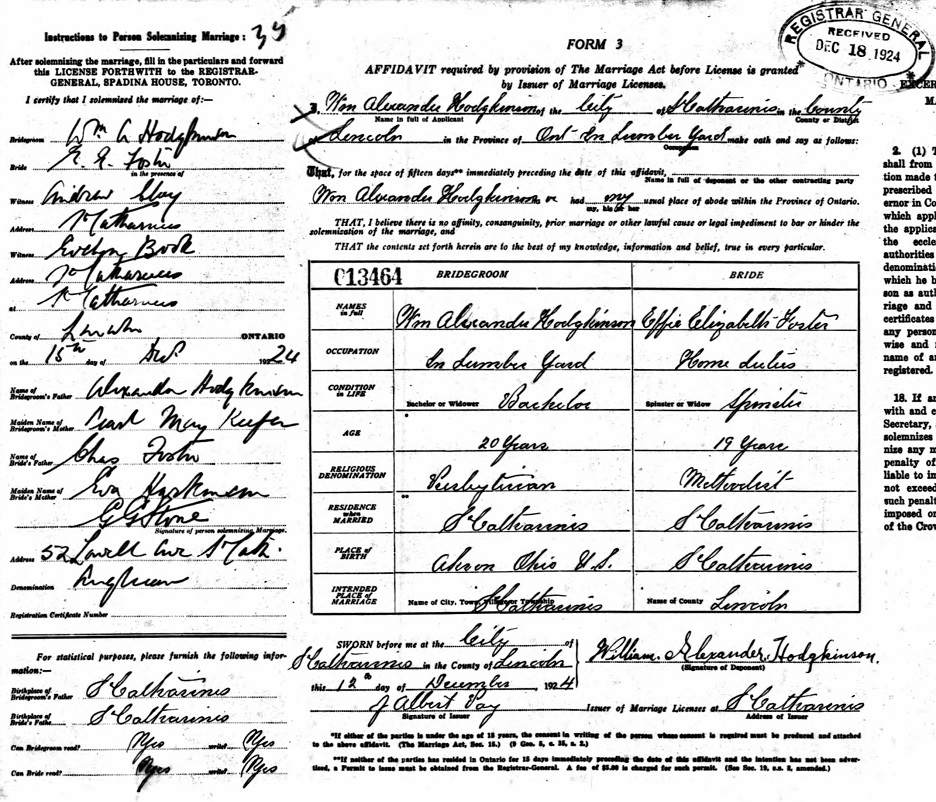 Instructions to Person Solemnizing Marriage: 39
After solemnizing the marriage, fill in the particulars and forward
this LICENSE FORTHWITH to the REGISTRAR-
GENERAL, SPADINA HOUSE, TORONTO.
I certify that I solemnized the marriage of:—
Bridegroom Wm A Hodgkinson
Bride E. E. Foster
in the presence of
Witness Andrew
Address St Catharines
Witness Evelyn Book
Address St Catharines
at St Catharines
County of Lincoln ONTARIO
on the 15th day of Dec. 1924
Name of Bridegroom's Father Alexander Hodgkinson
Maiden Name of Bridegroom's Mother Pearl May Keefer
Name of Bride's Father Chas Foster
Maiden Name of Bride's Mother Eva
G G Stone
Signature of person solemnizing Marriage.
Address 52 Lowell Ave St Cath.
Denomination Anglican
Registration Certificate Number
For statistical purposes, please furnish the following infor-
mation:—
Birthplace of Bridegroom's Father St Catharines
Birthplace of Bride's Father St Catharines
Can Bridegroom read? Yes write? Yes
Can Bride read? Yes write? Yes
REGISTRAR GENERAL
RECEIVED
DEC 18 1924
ONTARIO
FORM 3
AFFIDAVIT required by provision of The Marriage Act before License is granted
by Issuer of Marriage Licenses.
I, Wm Alexander Hodgkinson of the City of St Catharines in the County
Name in full of Applicant County or District
of Lincoln in the Province of Ont In Lumber Yard make oath and say as follows:
Occupation
That, for the space of fifteen days** immediately preceding the date of this affidavit,
Name in full of deponent or the other contracting party
Wm Alexander Hodgkinson had my usual place of abode within the Province of Ontario.
my, his or her
THAT, I believe there is no affinity, consanguinity, prior marriage or other lawful cause or legal impediment to bar or hinder the
solemnization of the marriage, and
THAT the contents set forth herein are to the best of my knowledge, information and belief, true in every particular.
013464 BRIDEGROOM BRIDE
NAMES in full Wm Alexander Hodgkinson Effie Elizabeth Foster
OCCUPATION In Lumber Yard Home duties
CONDITION in LIFE Bachelor or Widower Bachelor Spinster or Widow Spinster
AGE 20 Years 19 Years
RELIGIOUS DENOMINATION Presbyterian Methodist
RESIDENCE when MARRIED St Catharines St Catharines
PLACE of BIRTH Akron Ohio U.S. St Catharines
INTENDED PLACE of MARRIAGE Name of City, Town, Village or Township St Catharines Name of County Lincoln
SWORN before me at the City of
St Catharines in the County of Lincoln
this 12th day of December, 1924
William Alexander Hodgkinson.
(Signature of Deponent)
J Albert Pay Issuer of Marriage Licenses at St Catharines
Signature of Issuer Address of Issuer
*If either of the parties is under the age of 18 years, the consent in writing of the person whose consent is required must be produced and attached
to the above affidavit. (The Marriage Act, Sec. 15.) (9 Geo. 5, c. 35, s. 2.)
**If neither of the parties has resided in Ontario for 15 days immediately preceding the date of this affidavit and the intention has not been adver-
tised, a Permit to issue must be obtained from the Registrar-General. A fee of $5.00 is charged for such permit. (See Sec. 19, s.s. 2, amended.)
EXCER
MA
2. (1)
shall from
tion made
prescribed
ernor in Co
which appl
the applica
the eccle
authorities
denominati
which he b
son as auth
riage and
certificates
any person
wise and
name of an
registered.
18. If an
with and c
Secretary,
solemnizes
nize any m
penalty of
liable to im
not exceed
such penalt
imposed or
of the Crow